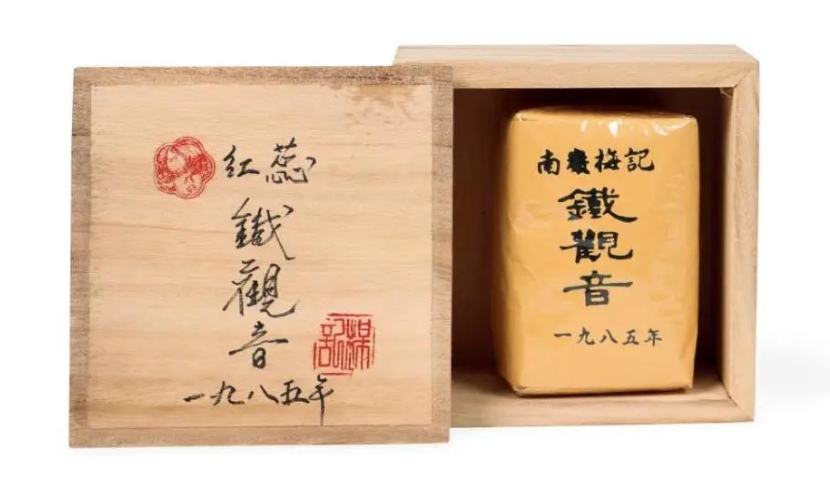 红蕊
鐵觀音
一九八五年
楳記
南巖梅記
鐵觀音
一九八五年